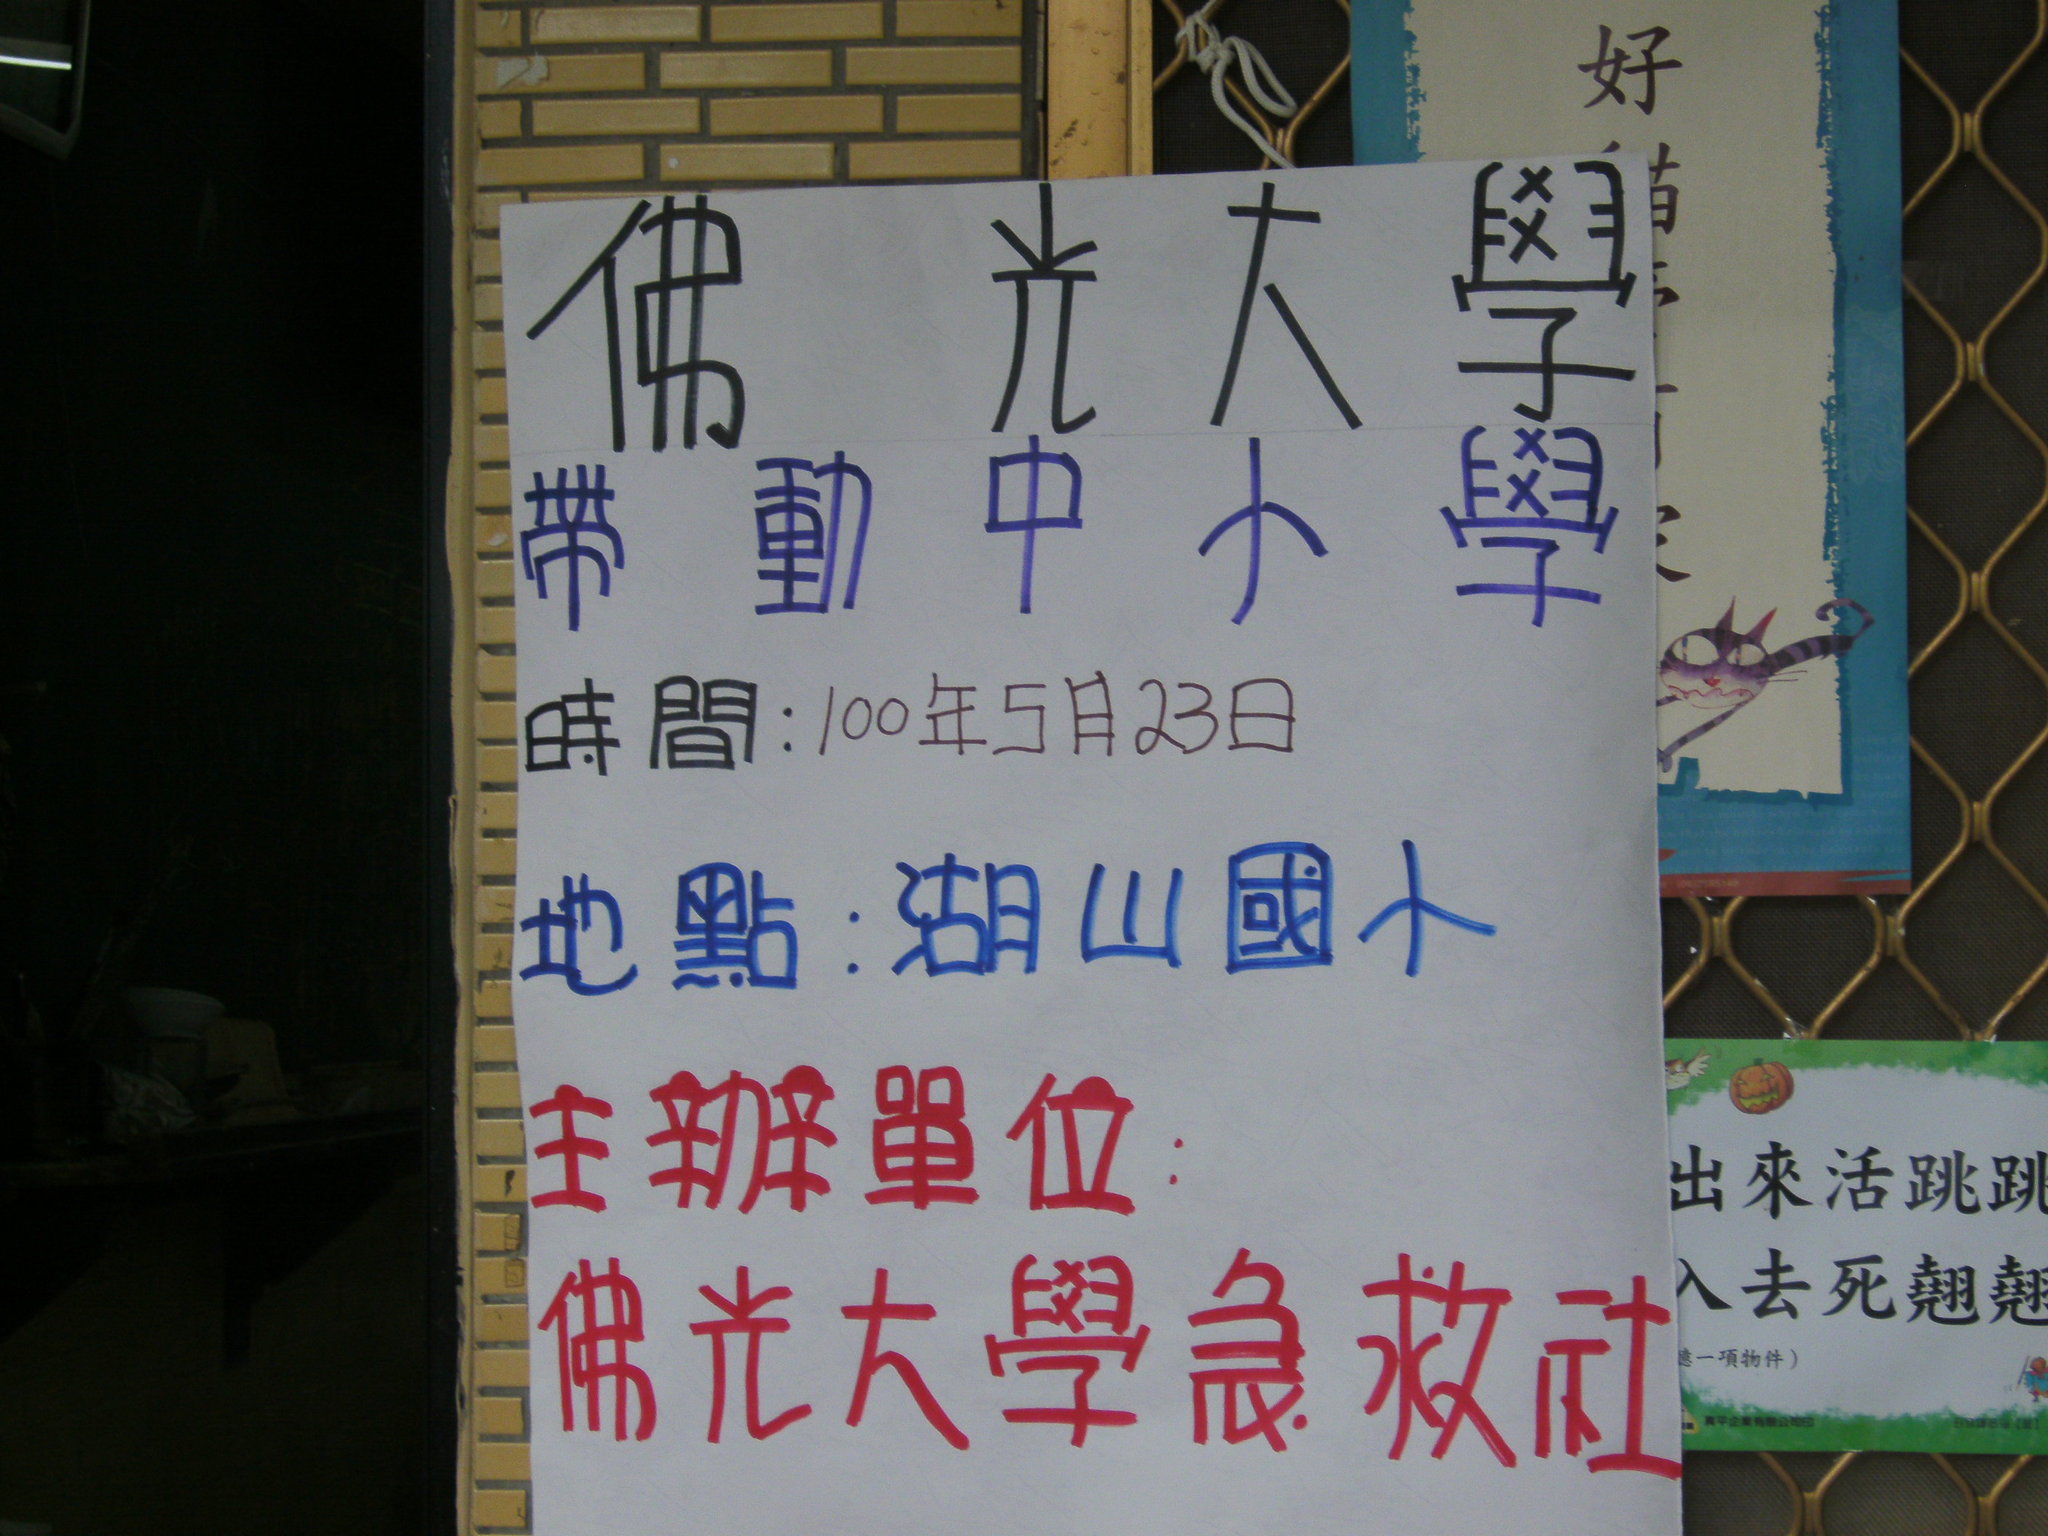 佛光大學
帶動中小學
時間：100年5月23日
地點：湖山國小
主辦單位：
佛光大學急救社
好貓
出來活跳跳
入去死翹翹
一項物件）